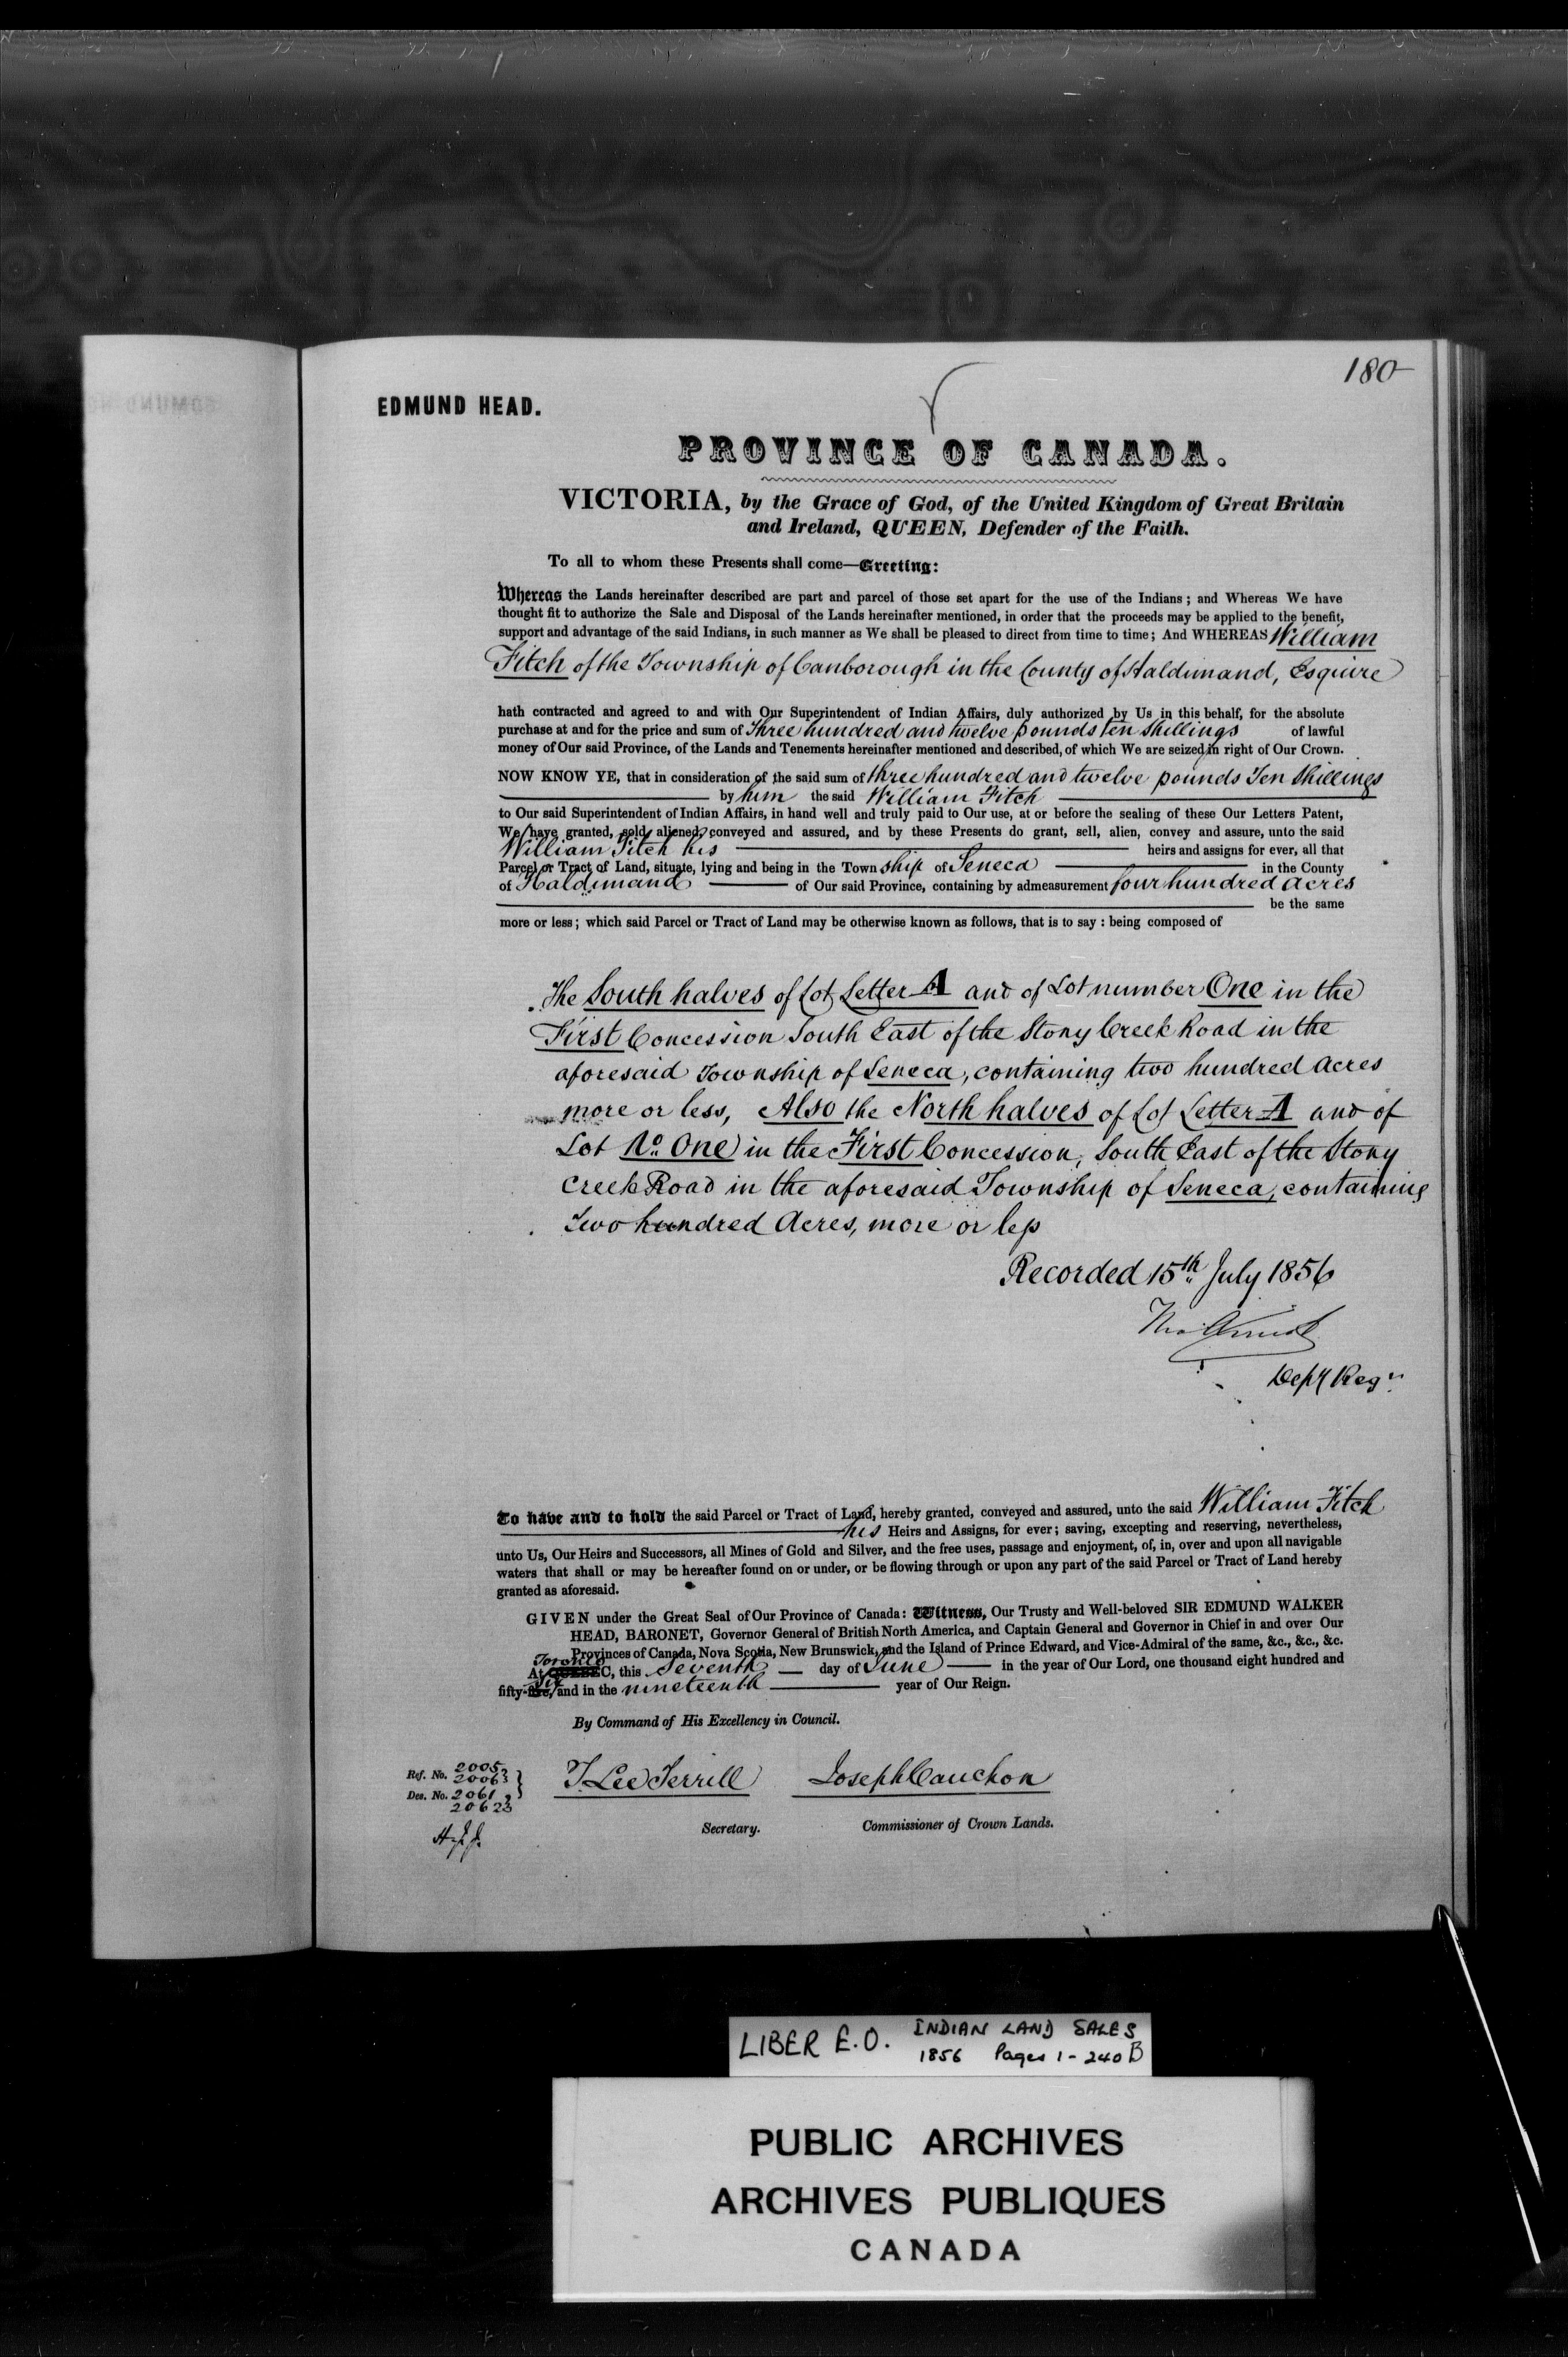 180
EDMUND HEAD.
PROVINCE OF CANADA.
VICTORIA, by the Grace of God, of the United Kingdom of Great Britain
and Ireland, QUEEN, Defender of the Faith.
To all to whom these Presents shall come—Greeting:
Whereas the Lands hereinafter described are part and parcel of those set apart for the use of the Indians; and Whereas We have
thought fit to authorize the Sale and Disposal of the Lands hereinafter mentioned, in order that the proceeds may be applied to the benefit,
support and advantage of the said Indians, in such manner as We shall be pleased to direct from time to time; And WHEREAS William
Fitch of the Township of Canborough in the County of Haldimand, Esquire
hath contracted and agreed to and with Our Superintendent of Indian Affairs, duly authorized by Us in this behalf, for the absolute
purchase at and for the price and sum of Three hundred and twelve pounds ten shillings of lawful
money of Our said Province, of the Lands and Tenements hereinafter mentioned and described, of which We are seized in right of Our Crown.
NOW KNOW YE, that in consideration of the said sum of three hundred and twelve pounds Ten Shillings
by him the said William Fitch
to Our said Superintendent of Indian Affairs, in hand well and truly paid to Our use, at or before the sealing of these Our Letters Patent,
We have granted, sold, aliened, conveyed and assured, and by these Presents do grant, sell, alien, convey and assure, unto the said
William Fitch his heirs and assigns for ever, all that
Parcel or Tract of Land, situate, lying and being in the Town ship of Seneca in the County
of Haldimand of Our said Province, containing by admeasurement four hundred acres
be the same
more or less; which said Parcel or Tract of Land may be otherwise known as follows, that is to say: being composed of
The South halves of Lot Letter A and of Lot number One in the
First Concession South East of the Stony Creek Road in the
aforesaid Township of Seneca, containing two hundred acres
more or less, Also the North halves of Lot Letter A and of
Lot No. One in the First Concession, South East of the Stony
Creek Road in the aforesaid Township of Seneca, containing
Two hundred Acres, more or less
Recorded 15th July 1856
Depy Regr.
To have and to hold the said Parcel or Tract of Land, hereby granted, conveyed and assured, unto the said William Fitch
his Heirs and Assigns, for ever; saving, excepting and reserving, nevertheless,
unto Us, Our Heirs and Successors, all Mines of Gold and Silver, and the free uses, passage and enjoyment, of, in, over and upon all navigable
waters that shall or may be hereafter found on or under, or be flowing through or upon any part of the said Parcel or Tract of Land hereby
granted as aforesaid.
GIVEN under the Great Seal of Our Province of Canada: Witness, Our Trusty and Well-beloved SIR EDMUND WALKER
HEAD, BARONET, Governor General of British North America, and Captain General and Governor in Chief in and over Our
Provinces of Canada, Nova Scotia, New Brunswick, and the Island of Prince Edward, and Vice-Admiral of the same, &c., &c., &c.
Toronto
At QUEBEC, this Seventh day of June in the year of Our Lord, one thousand eight hundred and
six
fifty-five, and in the nineteenth year of Our Reign.
By Command of His Excellency in Council.
Ref. No. 2005,
2006 }
Des. No. 2061, }
2062
T. Lee Terrill Joseph Cauchon
Secretary. Commissioner of Crown Lands.
LIBER E.O. INDIAN LAND SALES
1856 Pages 1-240 B
PUBLIC ARCHIVES
ARCHIVES PUBLIQUES
CANADA